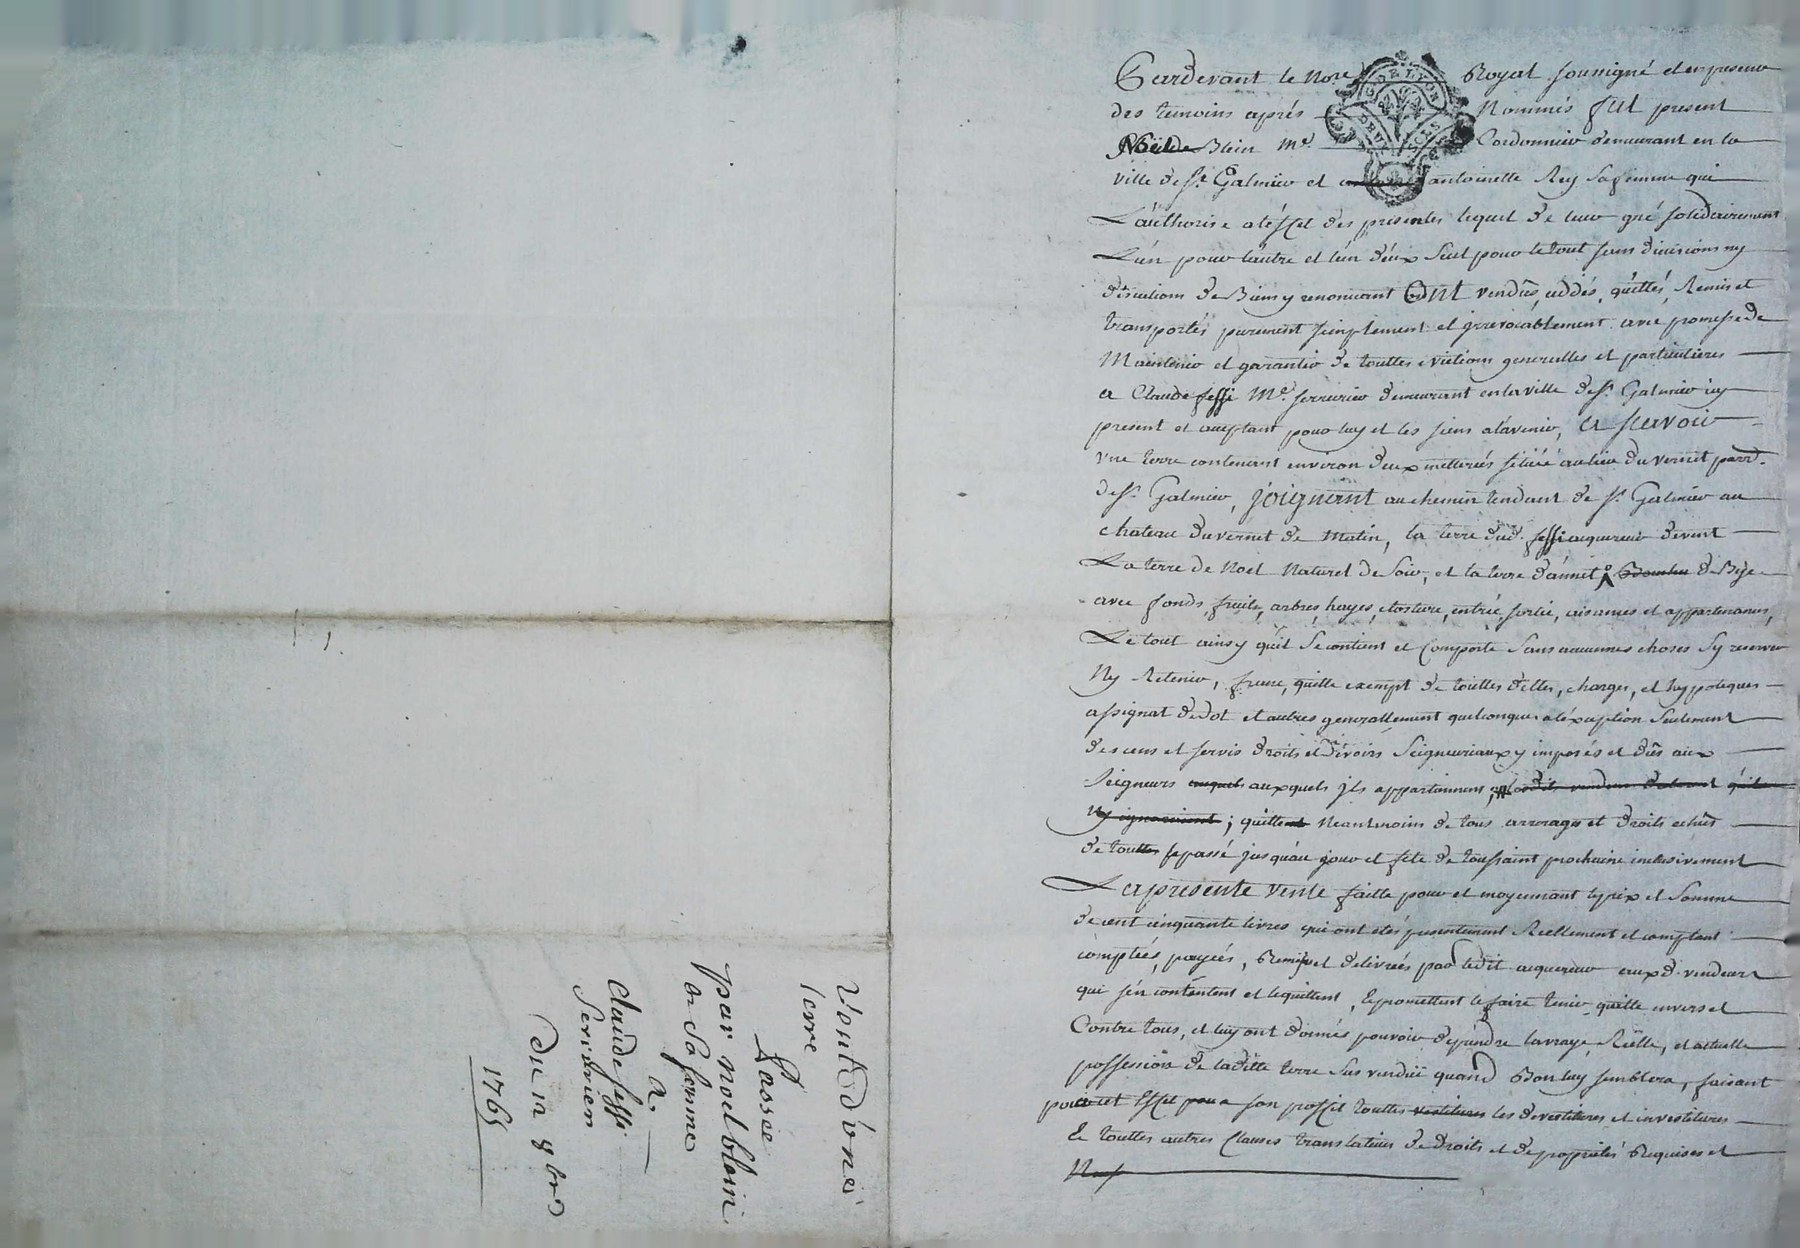 Pardevant le No.re Royal soussigné et en presence
des temoins aprés Nommés fut present
Noël Blein M.e Cordonnier demeurant en la
ville de S.t Galmier et antoinette Rey sa femme qui
L'aûthorise a l'éffet des presentes lequel de leur gré solidairement
L'ún pour l'aûtre et l'ún d'éux seul pour le tout sans divisions ny
discutions de Biens y renoncant Ont vendûs, ceddés, quittés, Remis et
transportés purement simplement et jrrevocablement avec promesse de
Maintenir et garantir de touttes evictions generalles et particulieres
a Claude Fessi M.e serrurier demeurant en la ville de S.t Galmier icy
present et acceptant pour luy et les siens a l'avenir, a scavoir
vne terre contenant environ deux metterées sitüée au lieu du vernet parr.
de S.t Galmier, joignant au chemin tendant de S.t Galmier au
chateau du vernet de Matin, la terre dud. fessi acquereur de vent
La terre de Noel Naturel de Soir, et la terre d'ánnet de Bize
avec fonds, fruits, arbres, hayes, closture, entrée, sortie, aisances et appartenances,
Le tout ainsy qu'il se contient et Comporte sans aucunnes choses s'y reserver
Ny Retenir, franc, quitte exempt de touttes dettes, charges, et hypoteques
assignat de dot et autres generallement quelconques a l'éxception seulement
des cens et servis droits et devoirs seigneuriaux y imposés et dûs aux
seigneurs auxquels jls appartiennent,
; quitte Neantmoins de tous arrerages et droits echûs
de tout le passé jusqu'áu jour et fete de toussaint prochaine inclusivement
La presente vente faitte pour et moyennant le prix et somme
de cent cinquante livres qui ont etés presentement Réellement et comptant
comptées, payées, Remises et delivrées par ledit acquereur auxd. vendeurs
qui s'én contentent et le quittent, et promettent le faire tenir quitte envers et
Contre tous, et luy ont donnés pouvoir de prendre la vraye, Réelle, et actuelle
possession de laditte terre sus vendüe quand Bon luy semblera, faisant
pour cet Effet a son proffit touttes les devestitures et investitures
Et touttes autres Clauses translatives de droits et de proprietés Requises et
Vente d'úne
terre
Passée
par noel blein
et sa femme
a
claude fessi
Serrurier
Du 12 9bre
1765